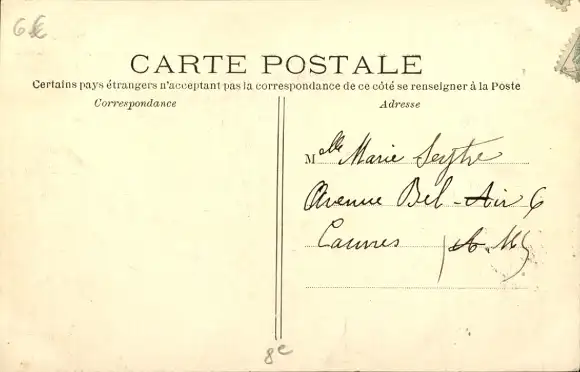 6€
CARTE POSTALE
Certains pays étrangers n'acceptant pas la correspondance de ce côté se renseigner à la Poste
Correspondance
Adresse
Melle Marie Seythe
Avenue Bel-Air 6
Cannes (A. M.)
8e